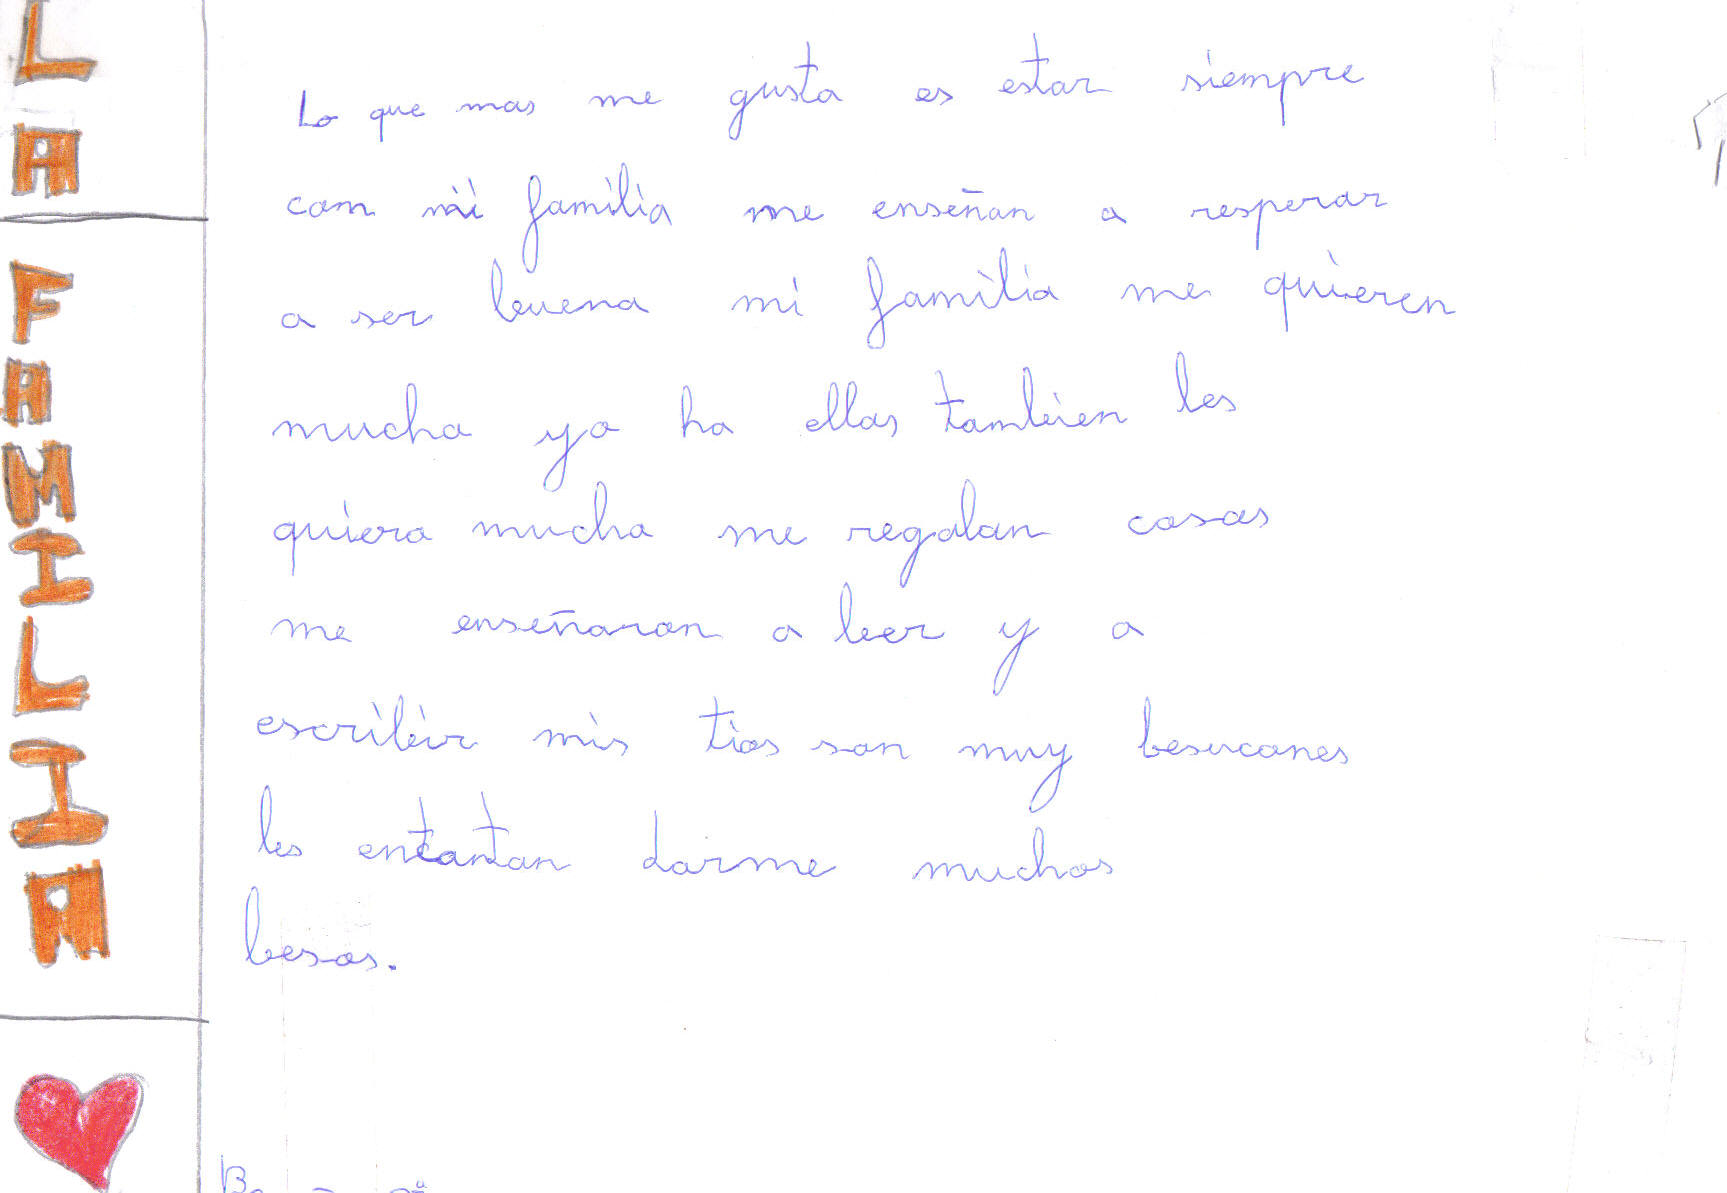 LA FAMILIA
Lo que mas me gusta es estar siempre
con mi familia me enseñan a resperar
a ser buena mi familia me quieren
mucho yo ha ellos tambien les
quiero mucho me regalan cosas
me enseñaron a leer y a
escribir mis tios son muy besucones
les encantan darme muchos
besos.